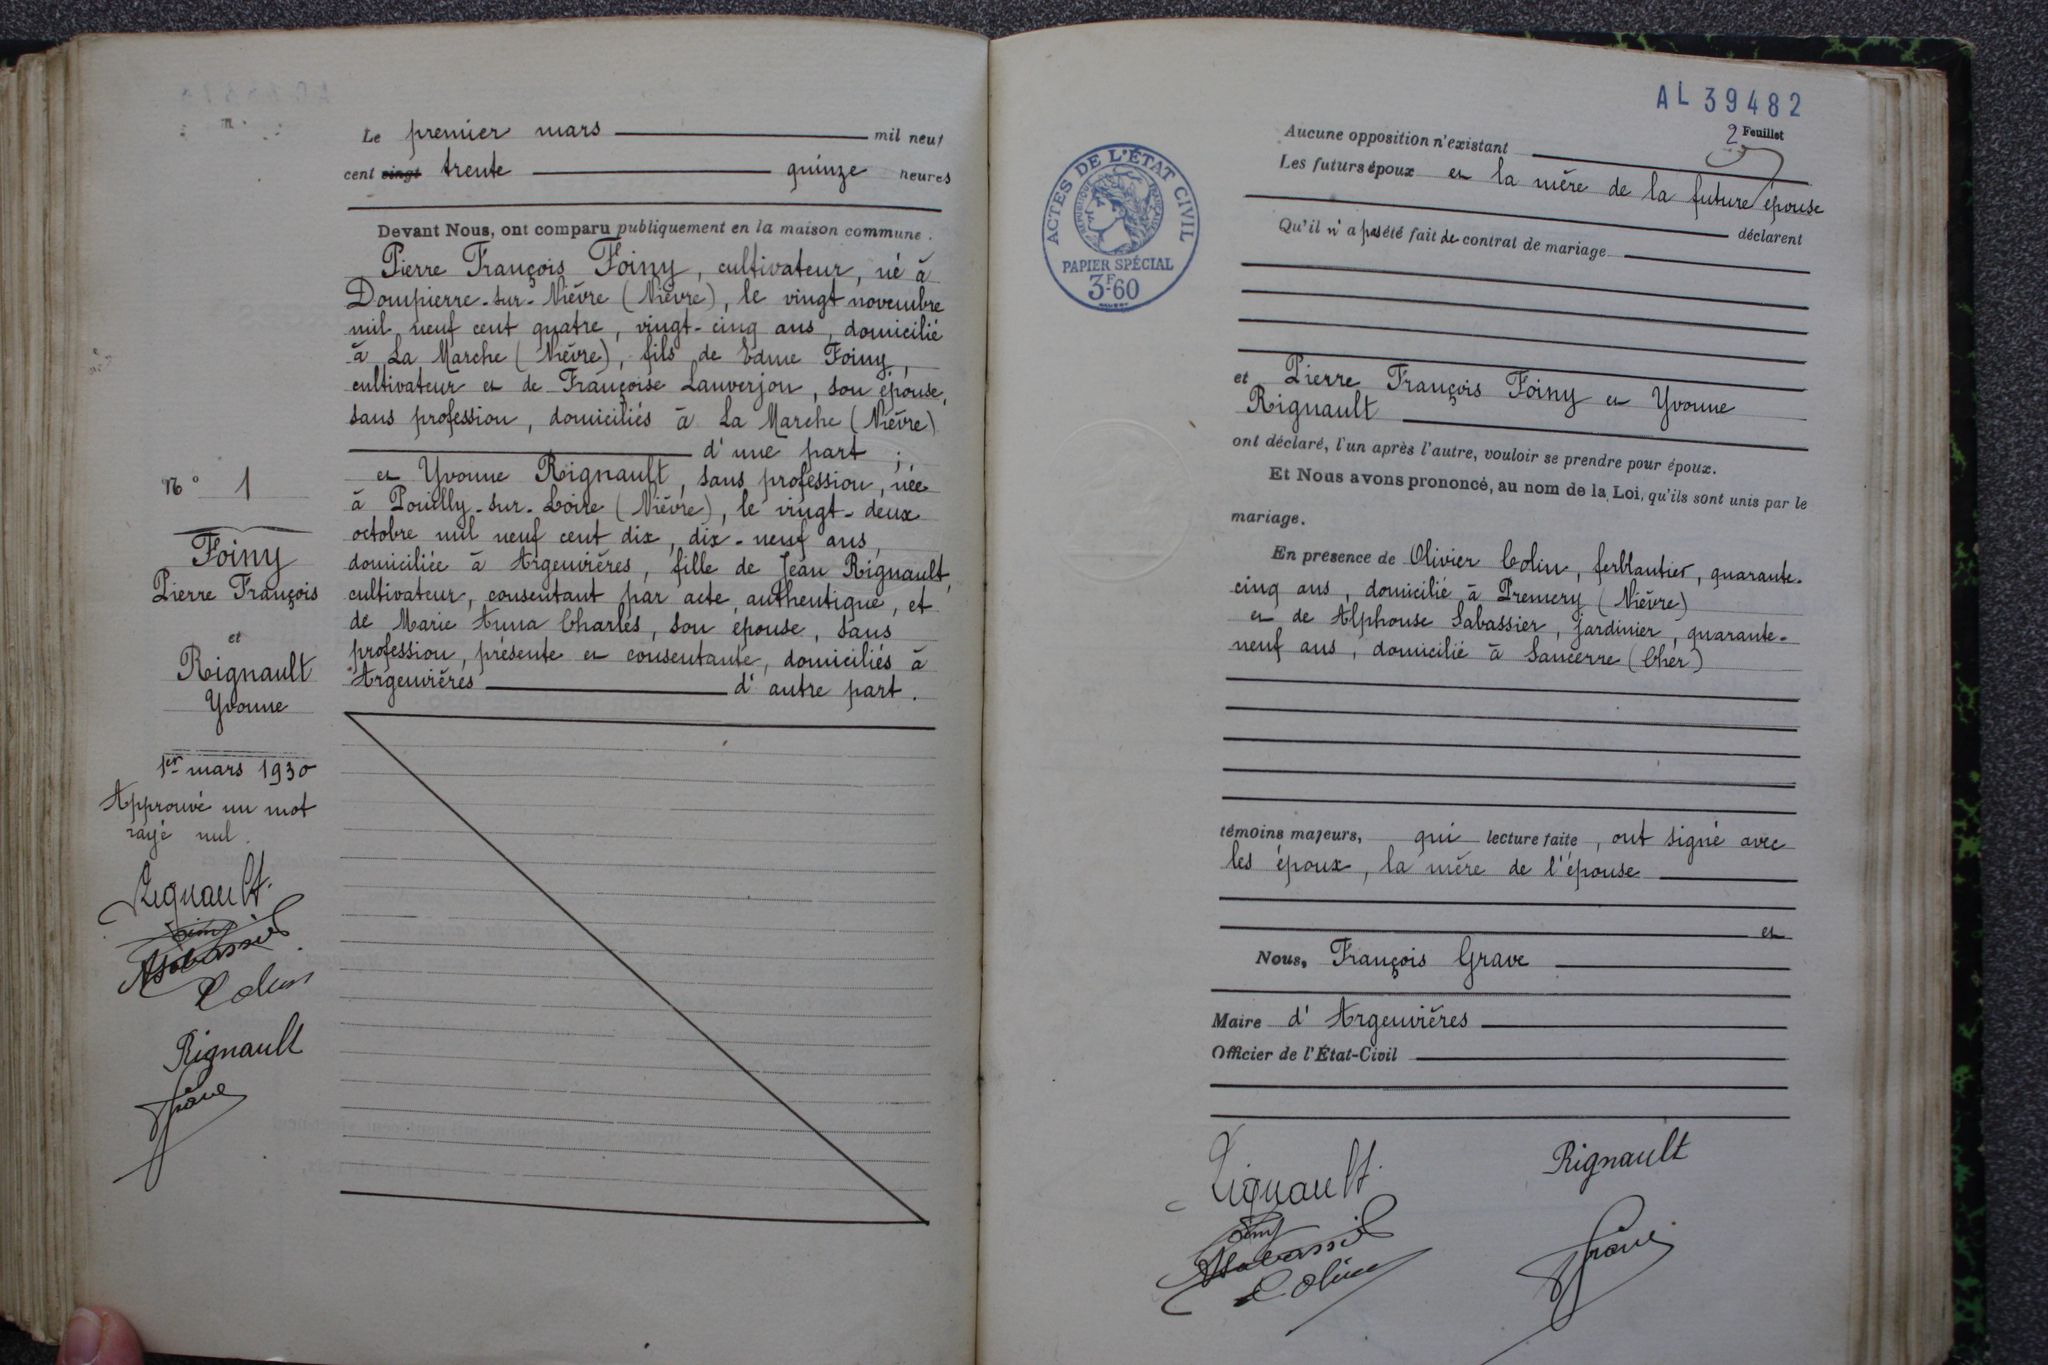 Le premier mars mil neuf
cent vingt trente quinze heures
Devant Nous, ont comparu publiquement en la maison commune :
Pierre François Foiny, cultivateur, né à
Dompierre-sur-Nièvre (Nièvre), le vingt novembre
mil neuf cent quatre, vingt-cinq ans, domicilié
à La Marche (Nièvre), fils de Edme Foiny,
cultivateur et de Françoise Lauverjon, son épouse,
sans profession, domiciliés à La Marche (Nièvre)
d'une part ;
et Yvonne Rignault, sans profession, née
à Pouilly-sur-Loire (Nièvre), le vingt-deux
octobre mil neuf cent dix, dix-neuf ans,
domiciliée à Argenvières, fille de Jean Rignault,
cultivateur, consentant par acte authentique, et
de Marie Anna Charles, son épouse, sans
profession, présente et consentante, domiciliés à
Argenvières d'autre part.
N° 1
Foiny
Pierre François
et
Rignault
Yvonne
1er mars 1930
Approuvé un mot
rayé nul.
Rignault
Foiny
ASabassier
Colin
Rignault
Grave
AL 39482
2 Feuillet
ACTES DE L'ÉTAT CIVIL
RÉPUBLIQUE FRANÇAISE
PAPIER SPÉCIAL
3F.60
Aucune opposition n'existant
Les futurs époux et la mère de la future épouse
déclarent
Qu'il n'a pas été fait de contrat de mariage
et Pierre François Foiny et Yvonne
Rignault
ont déclaré, l'un après l'autre, vouloir se prendre pour époux.
Et Nous avons prononcé, au nom de la Loi, qu'ils sont unis par le
mariage.
En présence de Olivier Colin, ferblantier, quarante-
cinq ans, domicilié à Premery (Nièvre)
et de Alphonse Sabassier, jardinier, quarante-
neuf ans, domicilié à Sancerre (Cher)
témoins majeurs, qui lecture faite, ont signé avec
les époux, la mère de l'épouse
et
Nous, François Grave
Maire d'Argenvières
Officier de l'État-Civil
Rignault
Rignault
Foiny
ASabassier
Colin
Grave